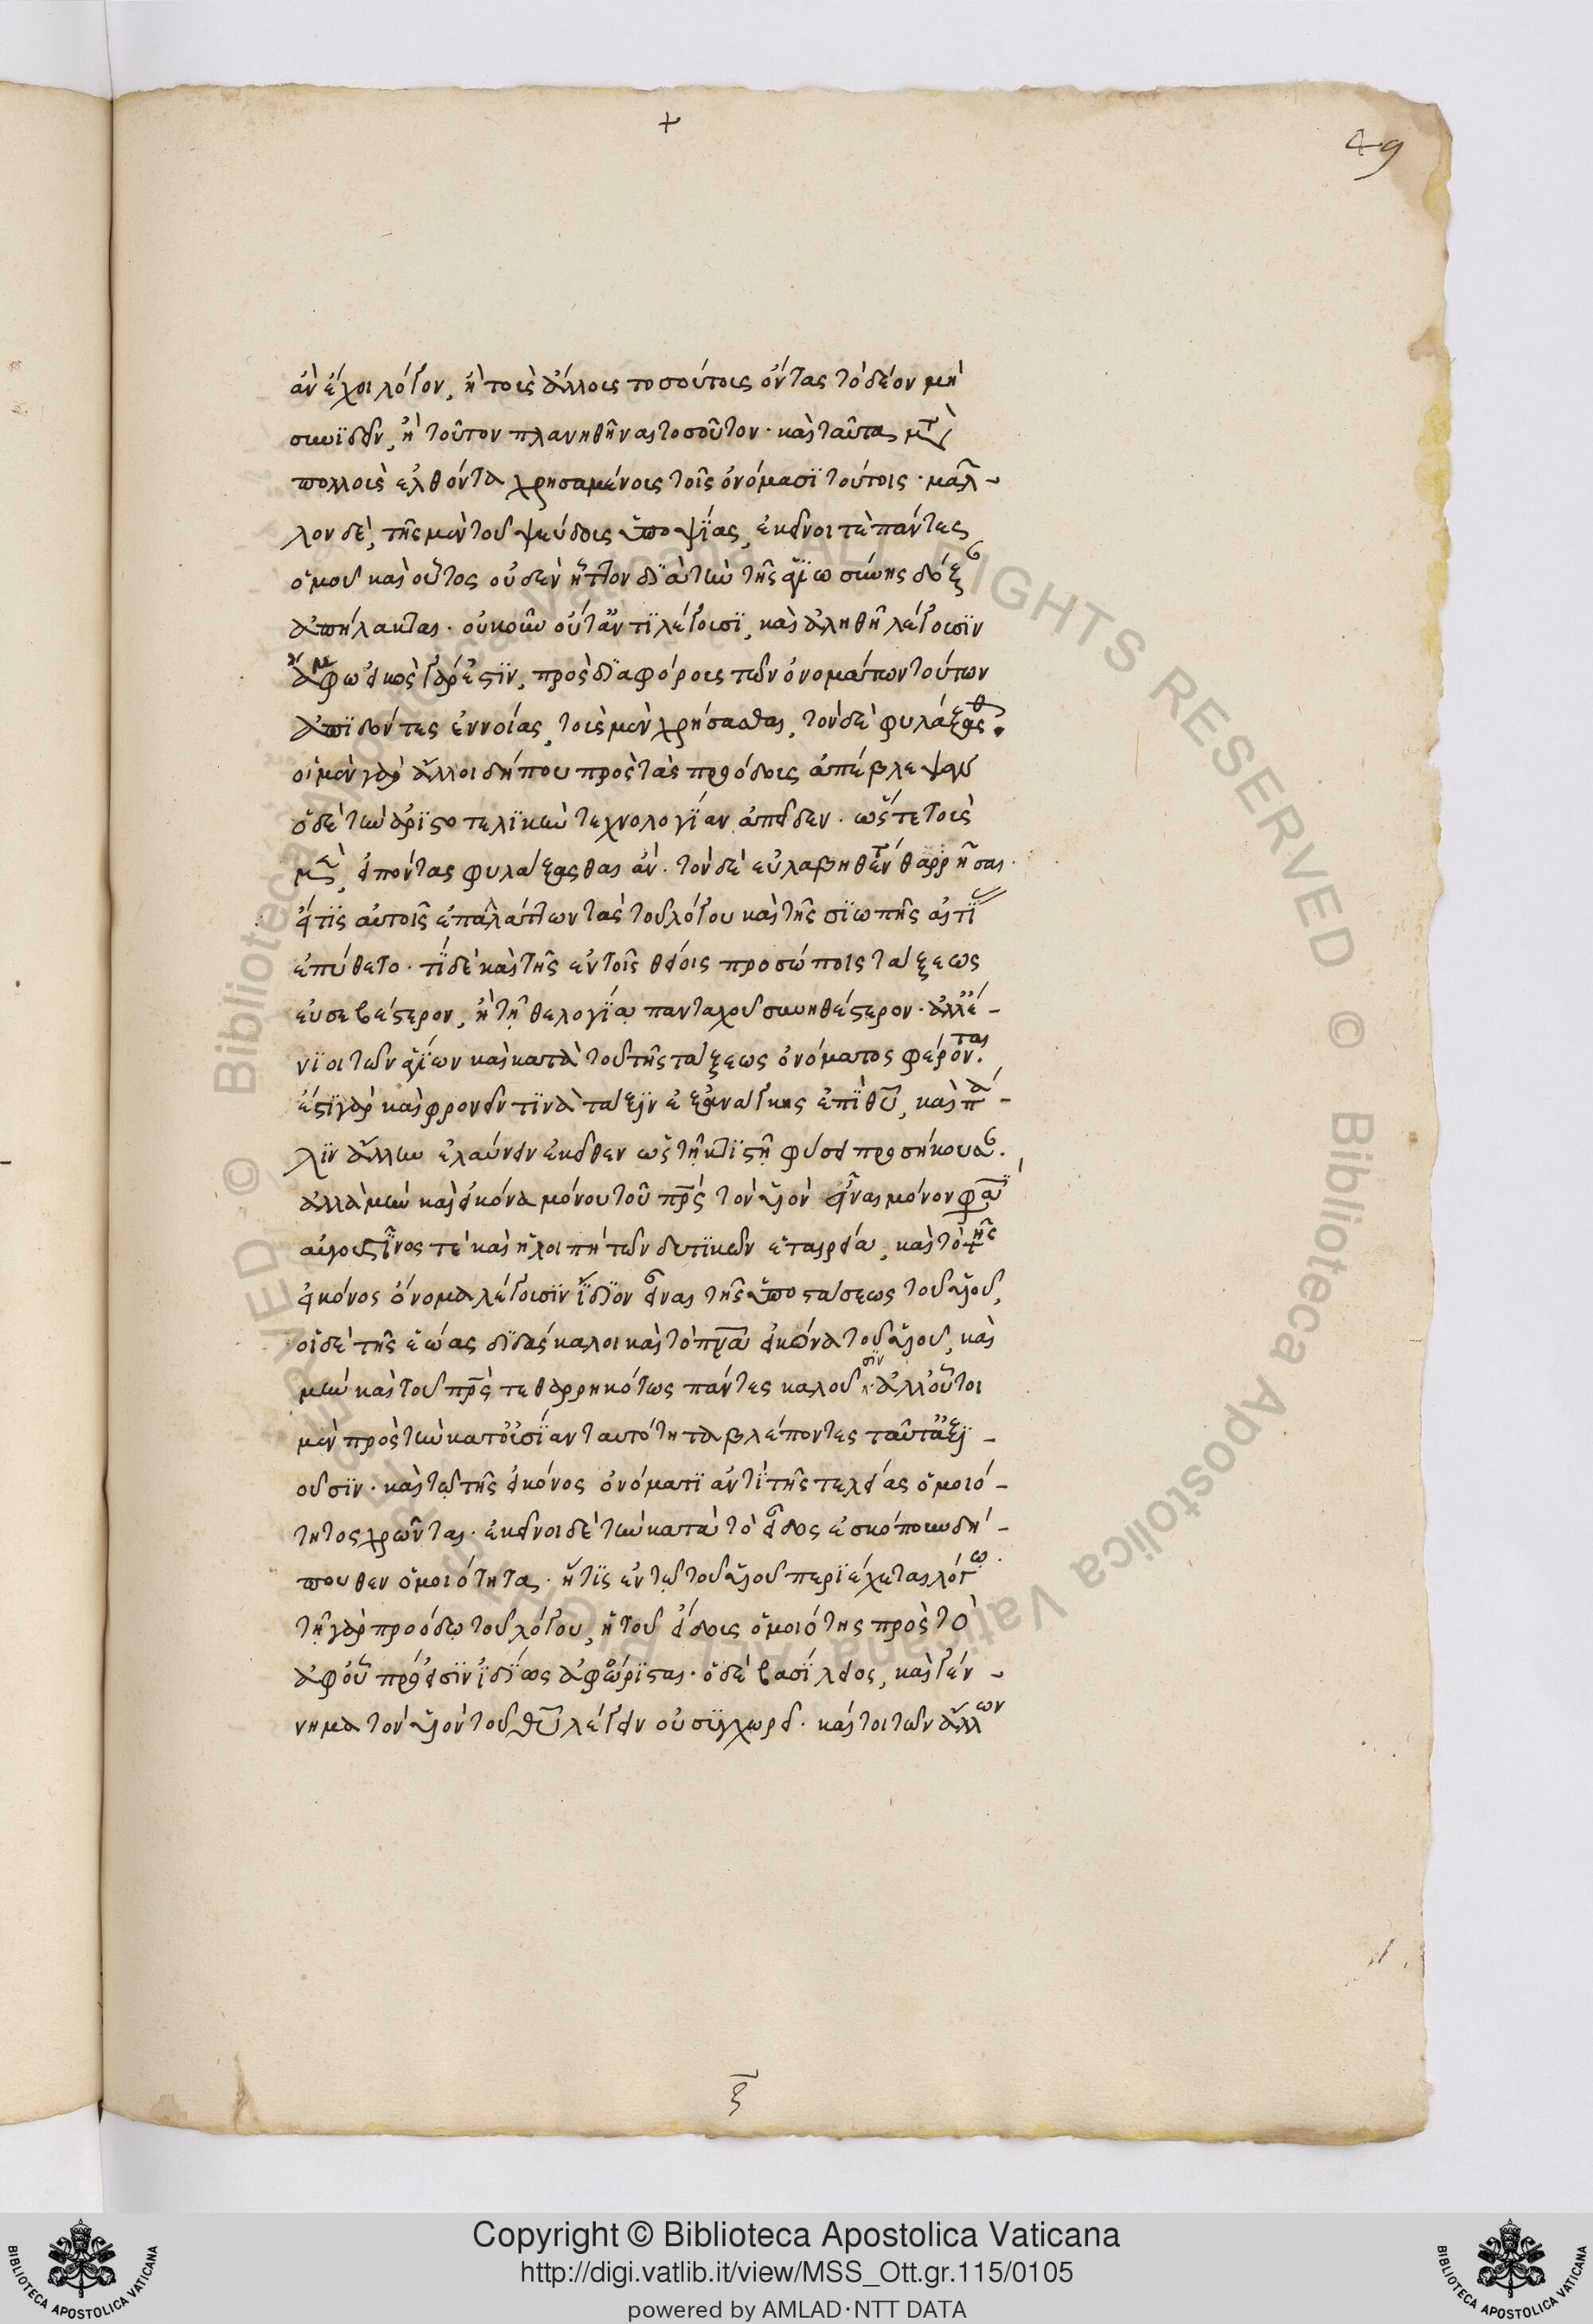 +
49
ἂν ἔχοι λόγον, ἢ τοὺς ἄλλους τοσούτους ὄντας τὸ δέον μὴ
συνϊδεῖν, ἢ τοῦτον πλανηθῆναι τοσοῦτον· καὶ ταῦτα μετὰ
πολλοὺς ἐλθόντα χρησαμένους τοῖς ὀνόμασϊ τούτοις· μᾶλ-
λον δὲ, τῆς μὲν τοῦ ψεύδους ὑποψΐας, ἐκεῖνοι τὲ πάντες
ὁμοῦ καὶ οὗτος οὐδὲν ἧττον δϊὰ τὴν τῆς ἁγϊωσύνης δόξαν
ἀπήλακται· οὐκοῦν οὔτ' ἀντϊλέγουσϊ, καὶ ἀληθῆ λέγουσϊν
ἄμφω εἰκὸς γάρ ἐστϊν, πρὸς δϊαφόρους τῶν ὀνομάτων τούτων
ἀπϊδόντες ἐννοίας, τοὺς μὲν χρήσασθαι, τὸν δὲ φυλάξασθαι.
οἱ μὲν γὰρ ἄλλοι δήπου πρὸς τὰς προόδους ἀπέβλεψαν
ὁ δὲ τὴν ἀρϊστοτελϊκὴν τεχνολογΐαν ἀπεῖδεν· ὥστε τοὺς
μὲν, εἰπόντας φυλάξασθαι ἄν· τὸν δὲ εὐλαβηθέντα θαρρῆσαι·
εἴ τϊς αὐτοῖς ἐπαλάττων τὰς τοῦ λόγου καὶ τῆς σϊωπῆς αἰτίας
ἐπύθετο· τΐ δὲ καὶ τῆς ἐν τοῖς θείοις προσώποις τάξεως
εὐσεβέστερον, ἢ τῇ θεολογΐᾳ πανταχοῦ συνηθέστερον· ἀλλ' ἔ-
νϊοι τῶν ἁγΐων καὶ κατὰ τοῦ τῆς τάξεως ὀνόματος φέρονται·
ἔστϊ γὰρ καὶ φρονεῖν τϊνὰ τάξϊν ἐξ ἀνάγκης ἐπϊ θεοῦ, καὶ πά-
λϊν ἄλλην ἐλαύνειν ἐκεῖθεν ὡς τῇ κτϊστῇ φύσει προσήκουσαν.
ἀλλὰ μὴν καὶ εἰκόνα μόνου τοῦ πρς τὸν υἱὸν εἶναι μόνον φασϊ
αὐγουστῖνος τὲ καὶ ἡ λοιπὴ τῶν δυτϊκῶν ἑταιρεία, καὶ τὸ τῆς
εἰκόνος ὄνομα λέγουσϊν ἴδϊον εἶναι τῆς ὑποστάσεως τοῦ υἱοῦ,
οἱ δὲ τῆς ἑῴας δϊδάσκαλοι καὶ τὸ πνα εἰκόνα τοῦ υἱοῦ, καὶ
μὴν καὶ τοῦ πρς τεθαρρηκότως πάντες καλοῦσϊν· ἀλλ' οὗτοι
μὲν πρὸς τὴν κατ' οὐσΐαν ταυτότητα βλέποντες ταῦτ' ἀξϊ-
οῦσϊν· καὶ τῷ τῆς εἰκόνος ὀνόματϊ ἀντὶ τῆς τελείας ὁμοιό-
τητος χρῶνται· ἐκεῖνοι δὲ τὴν κατὰ τὸ εἶδος ἐσκόπουν δή-
πουθεν ὁμοιότητα· ἥτϊς ἐν τῷ τοῦ υἱοῦ περϊέχεται λόγῳ·
τῇ γὰρ προόδῳ τοῦ λόγου, ἡ τοῦ εἴδους ὁμοιότης πρὸς τὸ
ἀφ' οὗ πρόεισϊν ἰδϊως ἀφώρϊσται· ὁ δὲ βασΐλειος, καὶ γέν-
νημα τὸν υἱὸν τοῦ θεοῦ λέγειν οὐ συγχωρεῖ· καίτοι τῶν ἄλλων
ξ
Copyright © Biblioteca Apostolica Vaticana
http://digi.vatlib.it/view/MSS_Ott.gr.115/0105
powered by AMLAD·NTT DATA